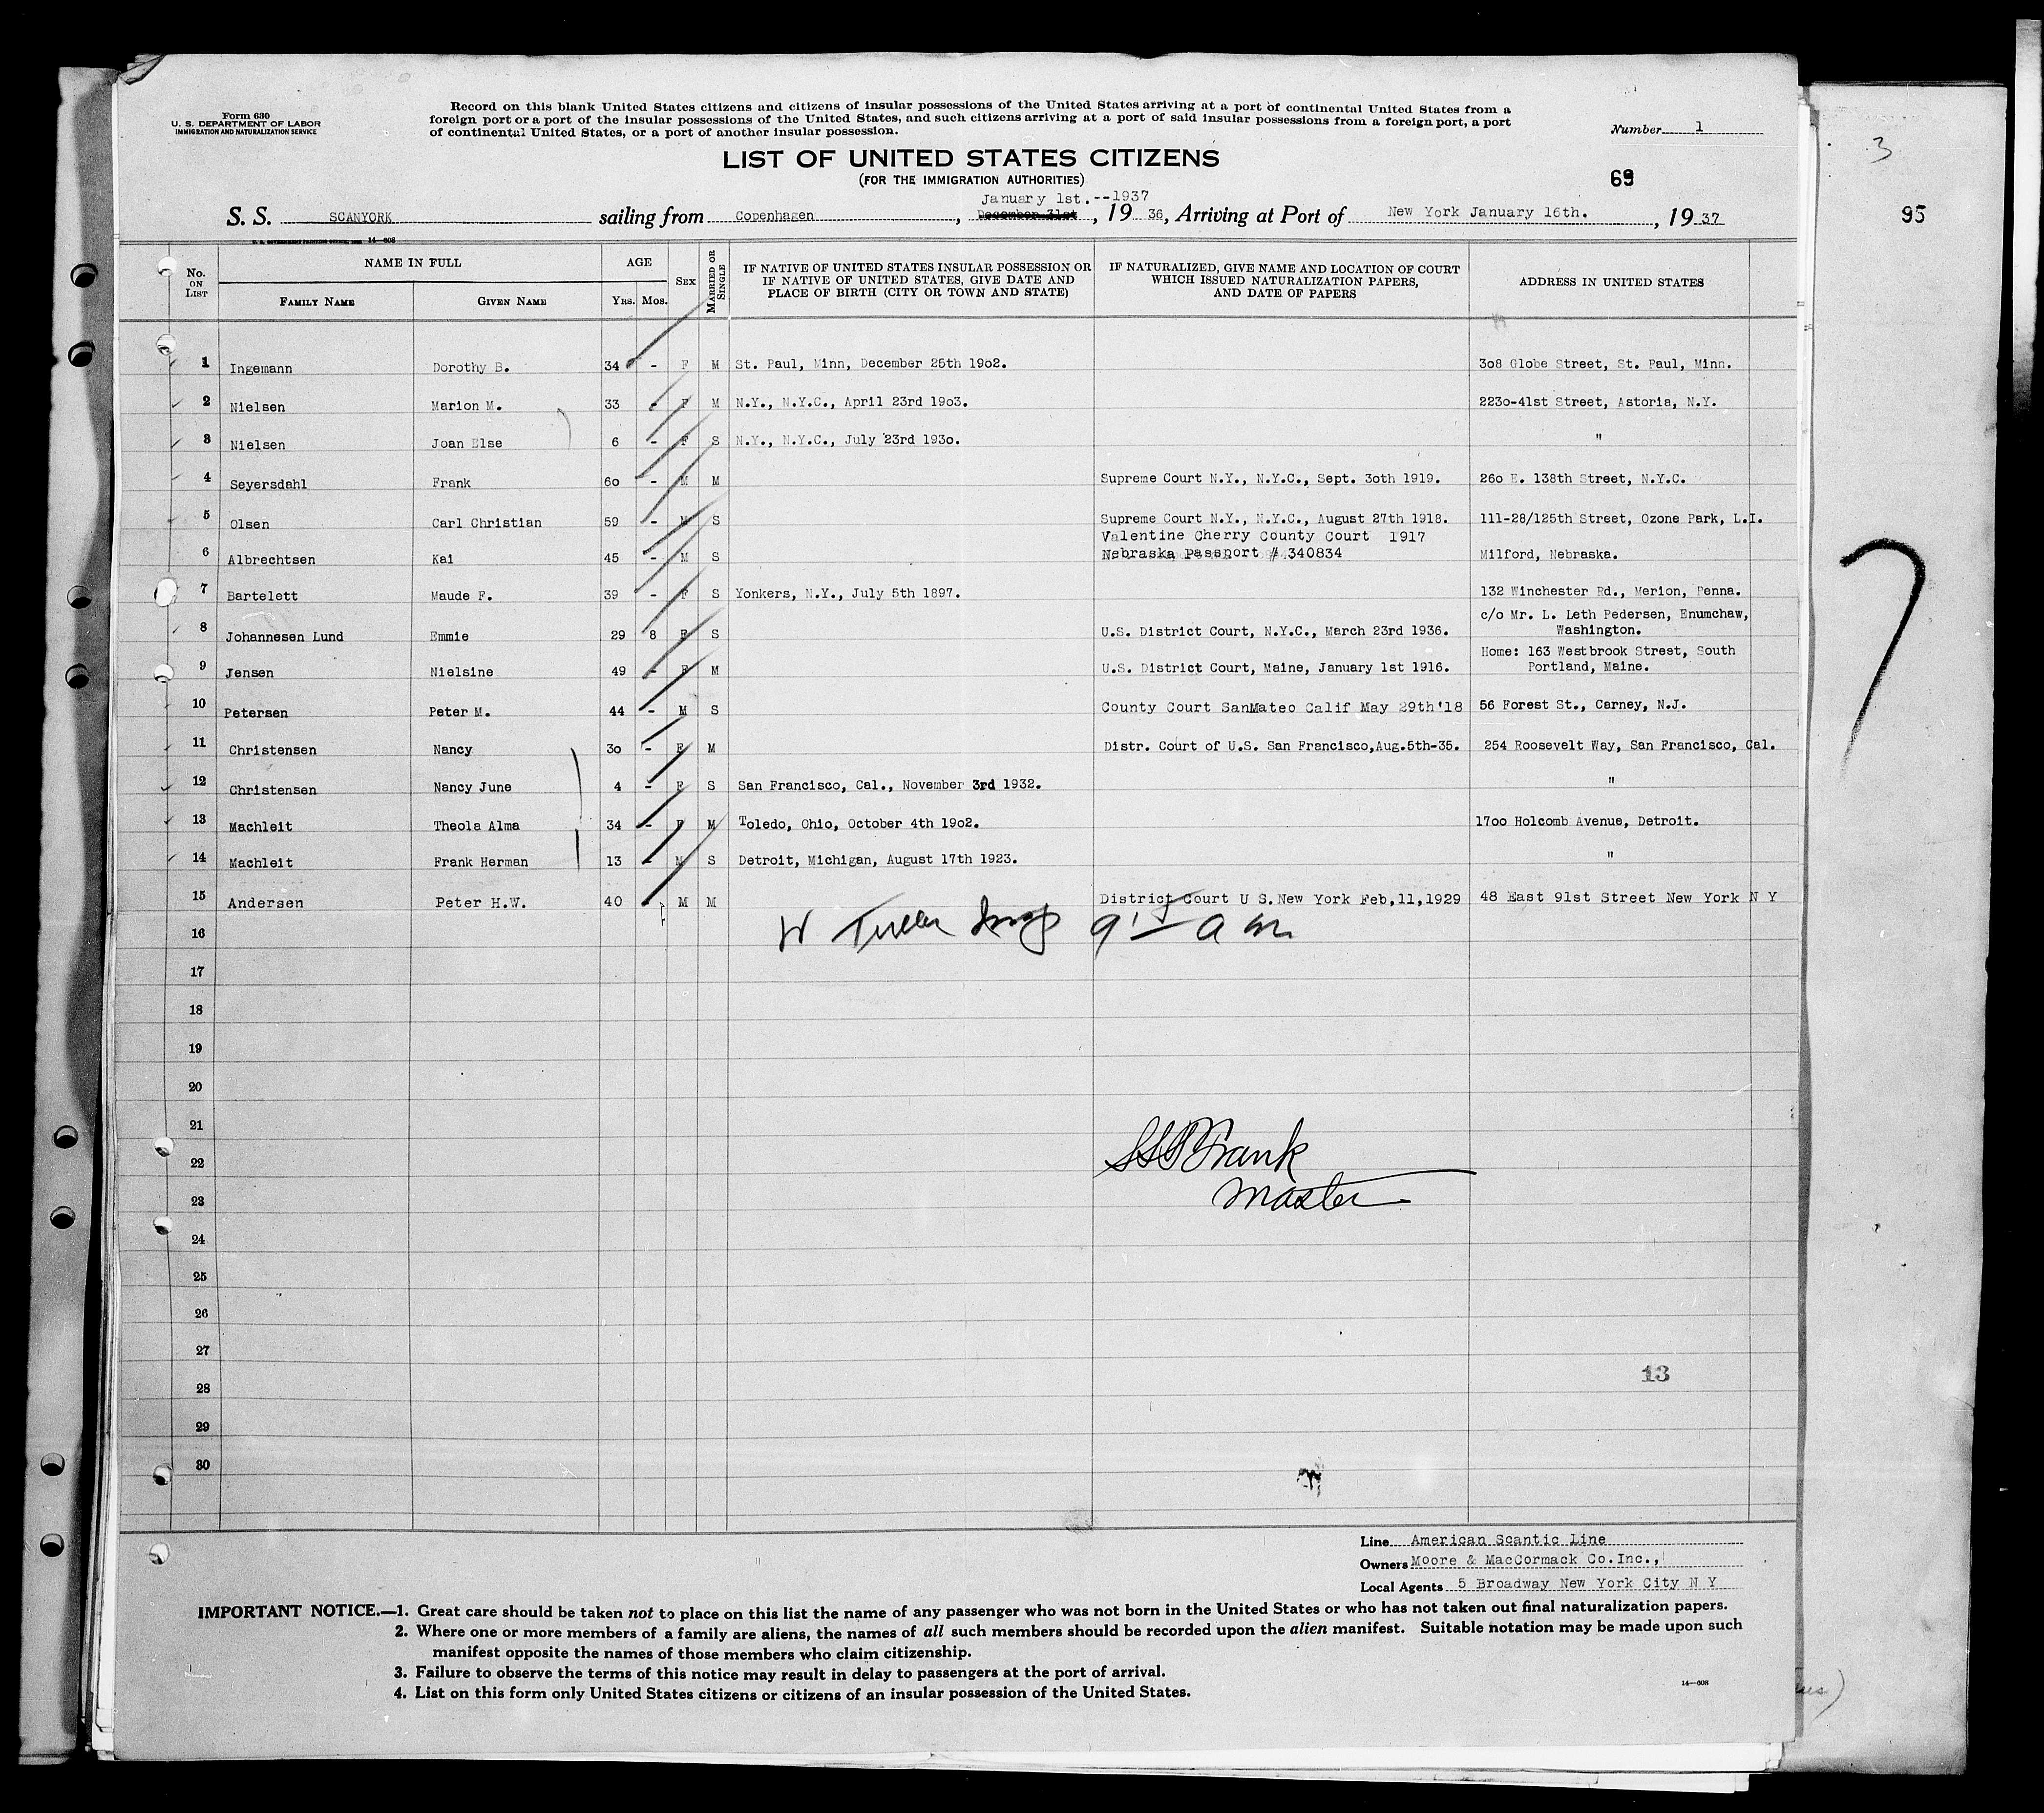 Form 630
U. S. DEPARTMENT OF LABOR
IMMIGRATION AND NATURALIZATION SERVICE
Record on this blank United States citizens and citizens of insular possessions of the United States arriving at a port of continental United States from a
foreign port or a port of the insular possessions of the United States, and such citizens arriving at a port of said insular possessions from a foreign port, a port
of continental United States, or a port of another insular possession.
Number 1
3
LIST OF UNITED STATES CITIZENS
(FOR THE IMMIGRATION AUTHORITIES)
69
95
January 1st.--1937
S. S. SCANYORK sailing from Copenhagen, December 31st, 19 36, Arriving at Port of New York January 16th., 19 37
14-608
No. ON LIST
NAME IN FULL
FAMILY NAME
GIVEN NAME
AGE
YRS. MOS.
SEX
MARRIED OR SINGLE
IF NATIVE OF UNITED STATES INSULAR POSSESSION OR
IF NATIVE OF UNITED STATES, GIVE DATE AND
PLACE OF BIRTH (CITY OR TOWN AND STATE)
IF NATURALIZED, GIVE NAME AND LOCATION OF COURT
WHICH ISSUED NATURALIZATION PAPERS,
AND DATE OF PAPERS
ADDRESS IN UNITED STATES
1 Ingemann Dorothy B. 34 - F M St. Paul, Minn, December 25th 19o2. 3o8 Globe Street, St. Paul, Minn.
2 Nielsen Marion M. 33 - F M N.Y., N.Y.C., April 23rd 19o3. 223o-41st Street, Astoria, N.Y.
3 Nielsen Joan Else 6 - F S N.Y., N.Y.C., July 23rd 193o. "
4 Seyersdahl Frank 6o - M M Supreme Court N.Y., N.Y.C., Sept. 3oth 1919. 26o E. 138th Street, N.Y.C.
5 Olsen Carl Christian 59 - M S Supreme Court N.Y., N.Y.C., August 27th 1918. 111-28/125th Street, Ozone Park, L.I.
Valentine Cherry County Court 1917
6 Albrechtsen Kai 45 - M S Nebraska Passport # 340834 Milford, Nebraska.
7 Bartelett Maude F. 39 - F S Yonkers, N.Y., July 5th 1897. 132 Winchester Rd., Merion, Penna.
c/o Mr. L. Leth Pedersen, Enumchaw,
8 Johannesen Lund Emmie 29 8 F S U.S. District Court, N.Y.C., March 23rd 1936. Washington.
Home: 163 Westbrook Street, South
9 Jensen Nielsine 49 - F M U.S. District Court, Maine, January 1st 1916. Portland, Maine.
10 Petersen Peter M. 44 - M S County Court SanMateo Calif May 29th'18 56 Forest St., Carney, N.J.
11 Christensen Nancy 3o - F M Distr. Court of U.S. San Francisco,Aug.5th-35. 254 Roosevelt Way, San Francisco, Cal.
12 Christensen Nancy June 4 - F S San Francisco, Cal., November 3rd 1932. "
13 Machleit Theola Alma 34 - F M Toledo, Ohio, October 4th 19o2. 17oo Holcomb Avenue, Detroit.
14 Machleit Frank Herman 13 - M S Detroit, Michigan, August 17th 1923. "
15 Andersen Peter H.W. 40 M M District Court U S.New York Feb,11,1929 48 East 91st Street New York N Y
16
17
18
19
20
21
22
23
24
25
26
27
28
29
30
Frank
Master
13
Line American Scantic Line
Owners Moore & MacCormack Co.Inc.,
Local Agents 5 Broadway New York City N Y
IMPORTANT NOTICE.—1. Great care should be taken not to place on this list the name of any passenger who was not born in the United States or who has not taken out final naturalization papers.
2. Where one or more members of a family are aliens, the names of all such members should be recorded upon the alien manifest. Suitable notation may be made upon such
manifest opposite the names of those members who claim citizenship.
3. Failure to observe the terms of this notice may result in delay to passengers at the port of arrival.
4. List on this form only United States citizens or citizens of an insular possession of the United States.
14—608